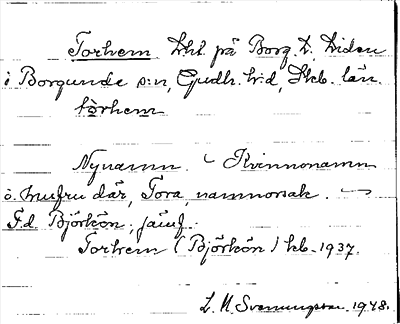 Torhem Lht på Borg, L. Liden
i Borgunda s:n, Gudh. h:d, Skb. län.
tòrhem
Nynamn. Kvinnonamn
o. hustru där, Tora, namnorsak.
F.d. Björkön; jämf.
Torhem (Björkön) kb. 1937.
L. M. Svenungsson. 1948.